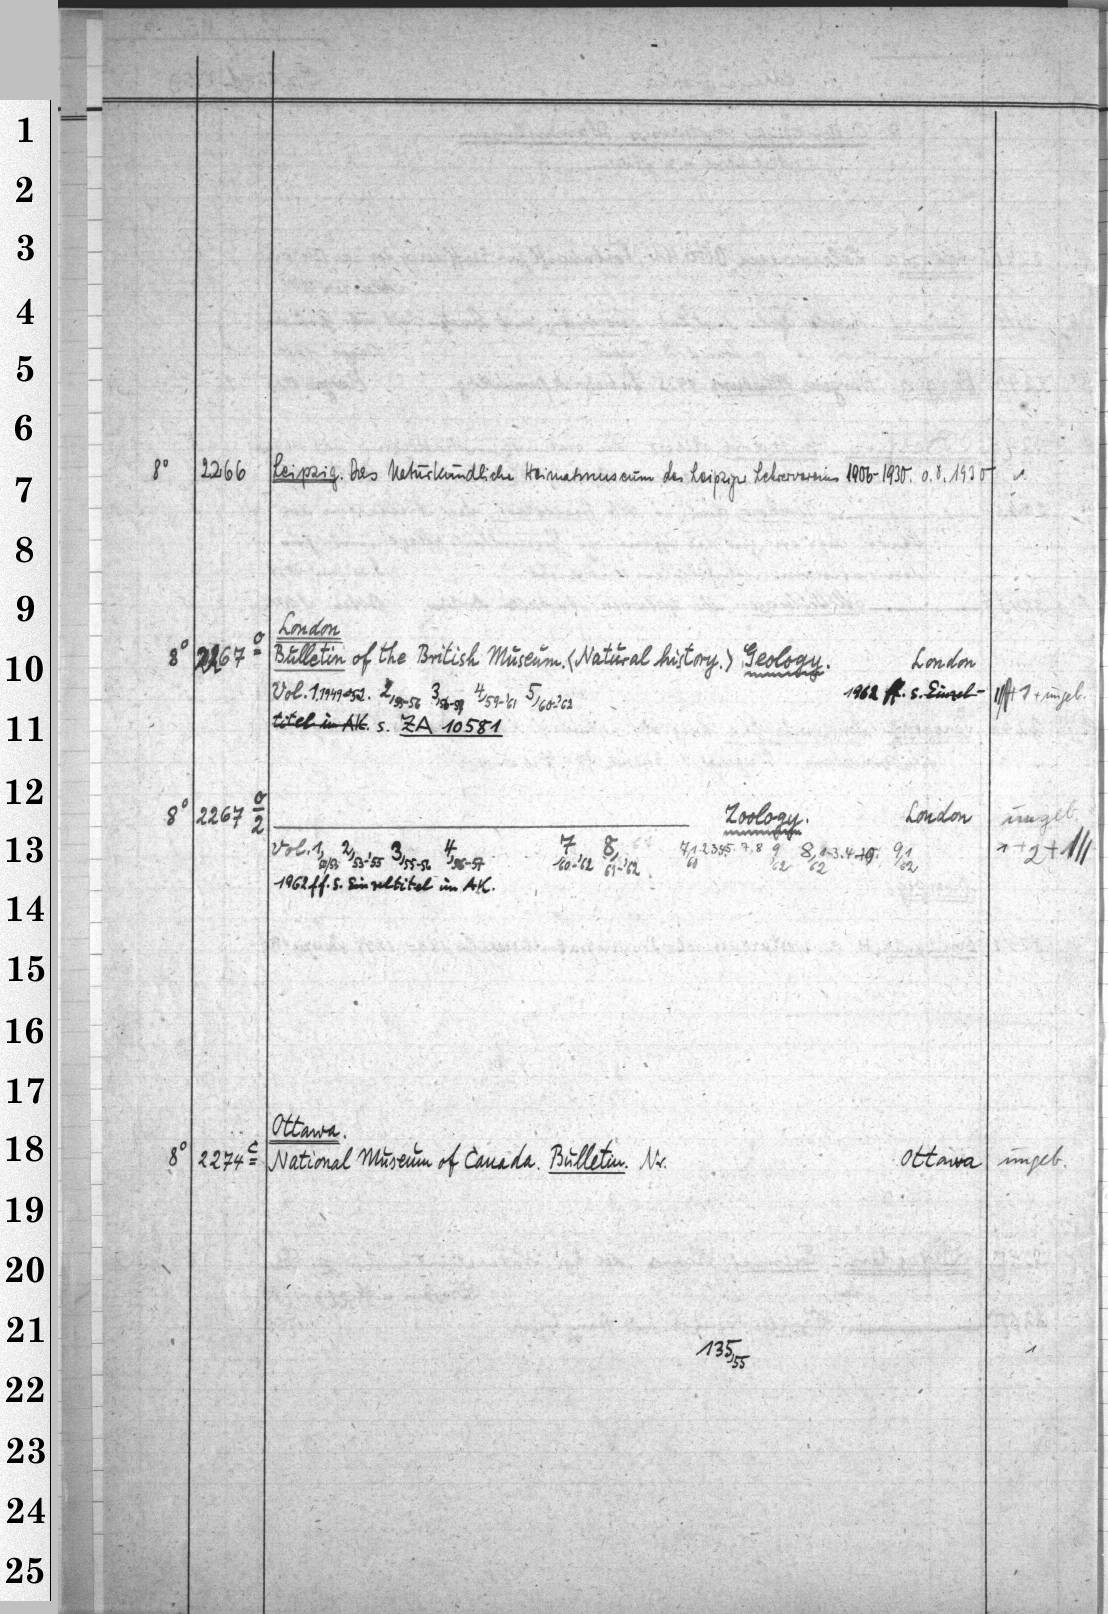 1
2
3
4
5
6
7
8° 2266 Leipzig. Das Naturkundliche Heimatmuseum des Leipziger Lehrervereins 1906-1930. o.O. 1930 1
8
9
London
10
8° 2267 o Bulletin of the British Museum. (Natural history.) Geology. London
Vol. 1,1949-52. 2,/55-56 3,/56-59 4,/59-'61 5,/60-'62 1962 ff. s. Einzel- 1 + ungeb.
11
titel im AK. s. ZA 10581
12
8° 2267 o/2 Zoology. London ungeb.
13
Vol. 1, 2,/53-'55 3,/55-56 4,/56-57 7,/60-'62 8,/61-'62 9,/62 8,/62 9,1/62 1+2+1
1962 ff. s. Einzeltitel im AK.
14
15
16
17
Ottawa.
18
8° 2274 c National Museum of Canada. Bulletin. Nr. Ottawa ungeb.
19
20
21
135,/55 1
22
23
24
25